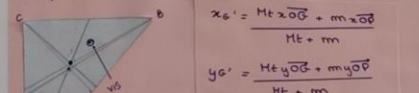 C B
VIS
x_G' = (Mt x_{\overrightarrow{OG}} + m x_{\overrightarrow{OP}}) / (Mt + m)
y_G' = (Mt y_{\overrightarrow{OG}} + m y_{\overrightarrow{OP}}) / (Mt + m)